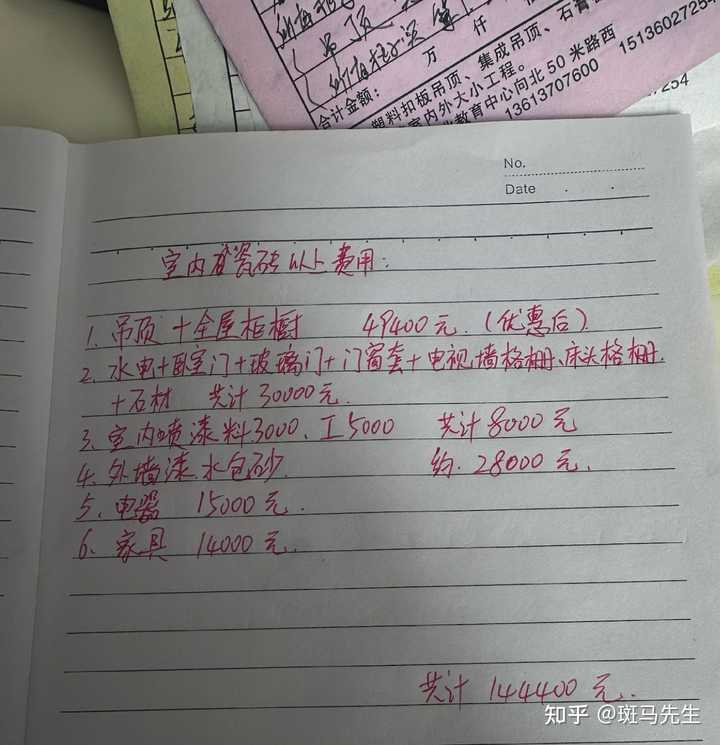 吊顶
合计金额: 万 仟
塑料扣板吊顶、集成吊顶、石膏
室内外大小工程。
教育中心向北 50 米路西
13613707600
1513602725
254
No.
Date
室内瓷砖以上费用:
1. 吊顶 + 全屋柜橱 49400元. (优惠后)
2. 水电+卧室门+玻璃门+门窗套+电视墙格栅、床头格栅.
+石材 共计 30000元.
3. 室内喷漆料3000、工5000 共计 8000元
4. 外墙漆水包砂. 约. 28000元.
5. 电器 15000元.
6. 家具 14000元.
共计 144400元.
知乎 @斑马先生